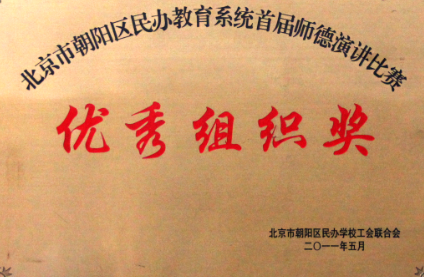 北京市朝阳区民办教育系统首届师德演讲比赛
优秀组织奖
北京市朝阳区民办学校工会联合会
二〇一一年五月